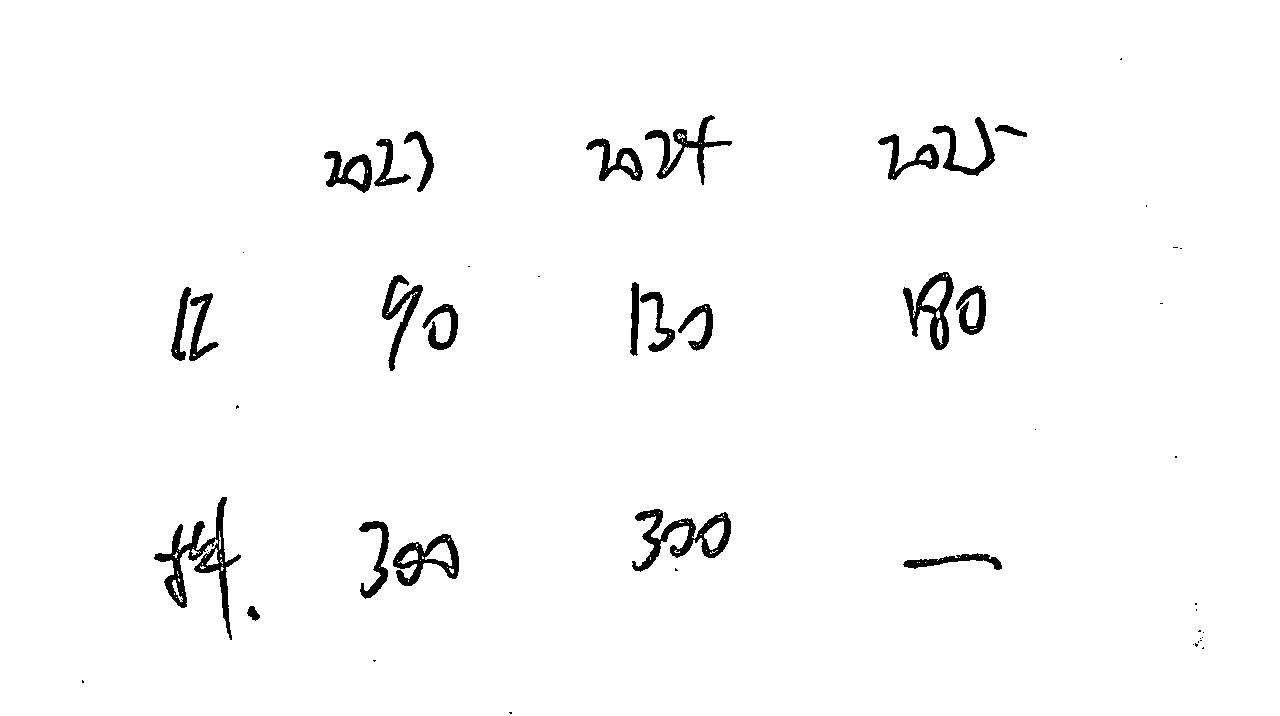 2023 2024 2025
红 90 130 180
抖. 300 300 —